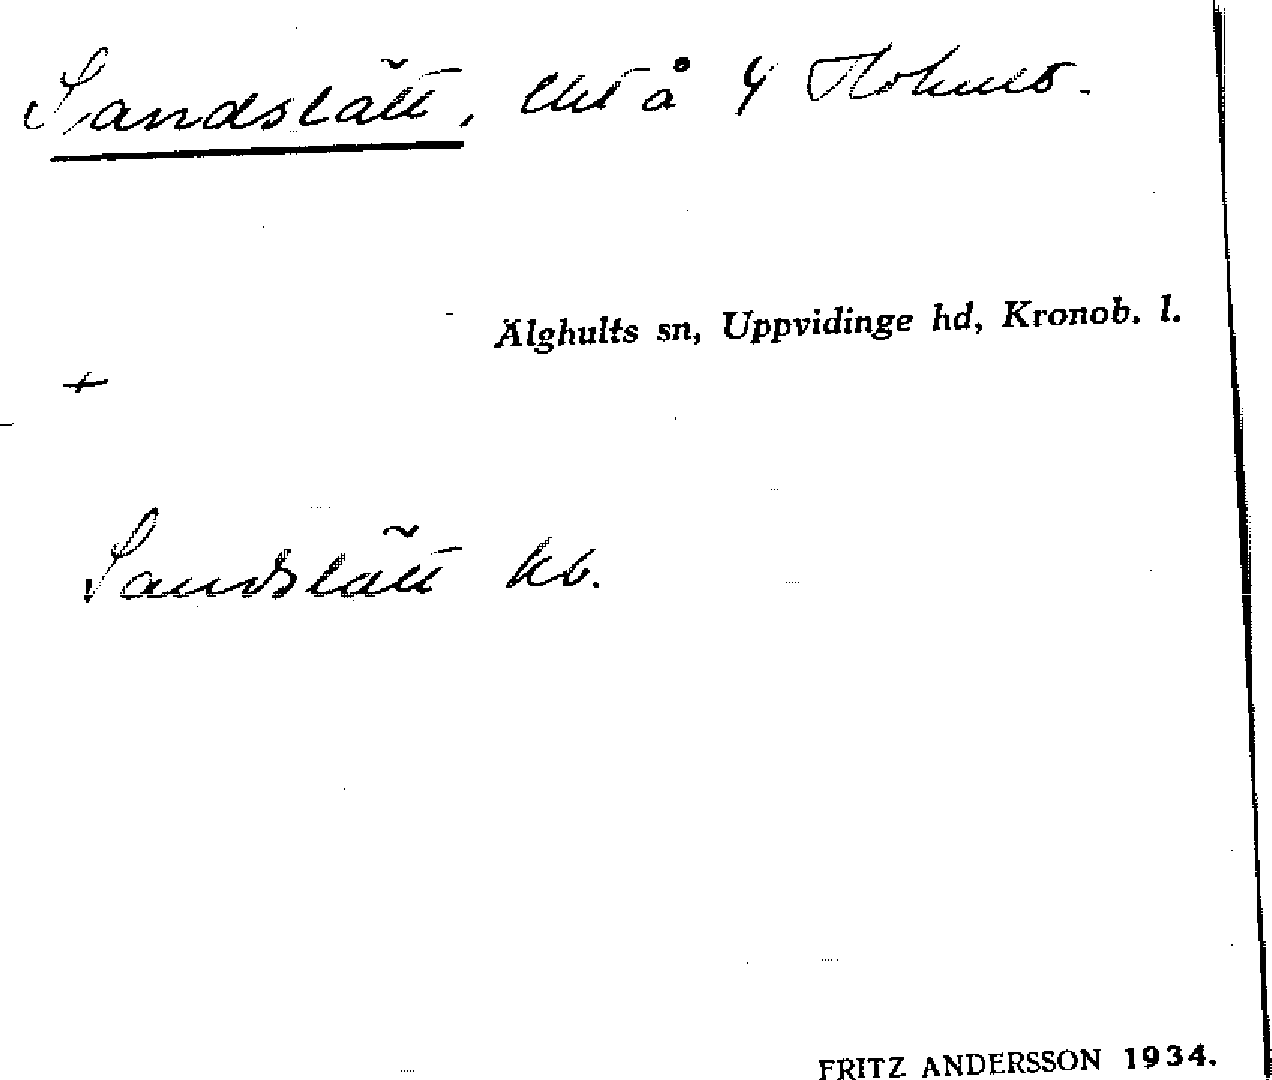 Sandslätt, lht å Y Hohult.
Älghults sn, Uppvidinge hd, Kronob. l.
+
Sandslätt kb.
FRITZ ANDERSSON 1934.